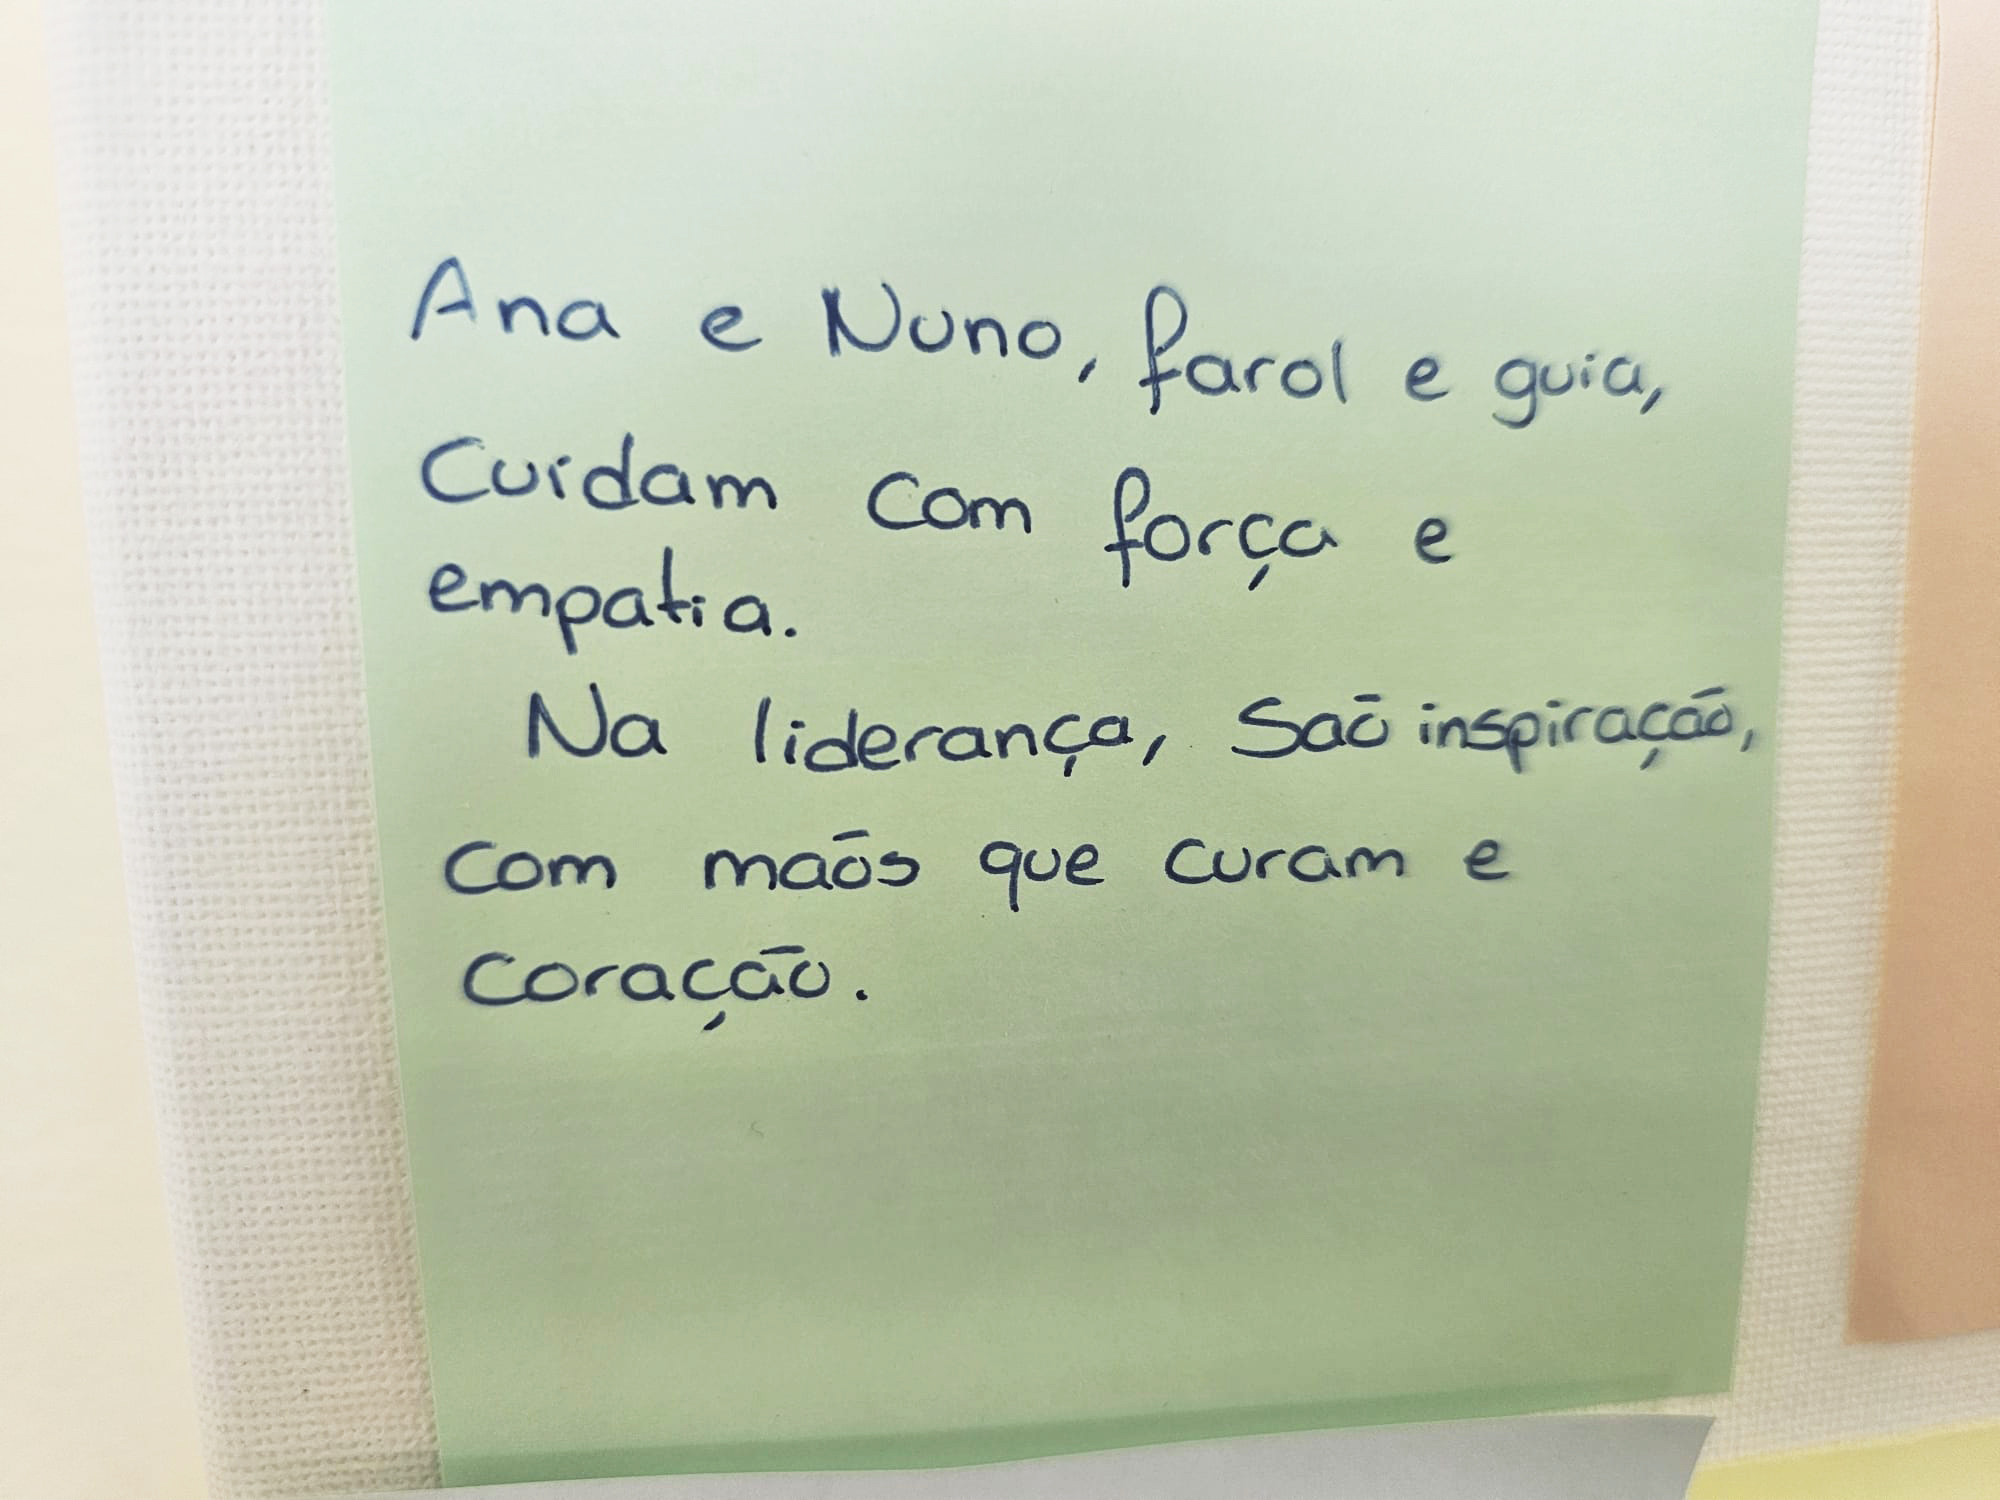 Ana e Nuno, farol e guia,
Cuidam com força e
empatia.
Na liderança, São inspiração,
com mãos que curam e
coração.